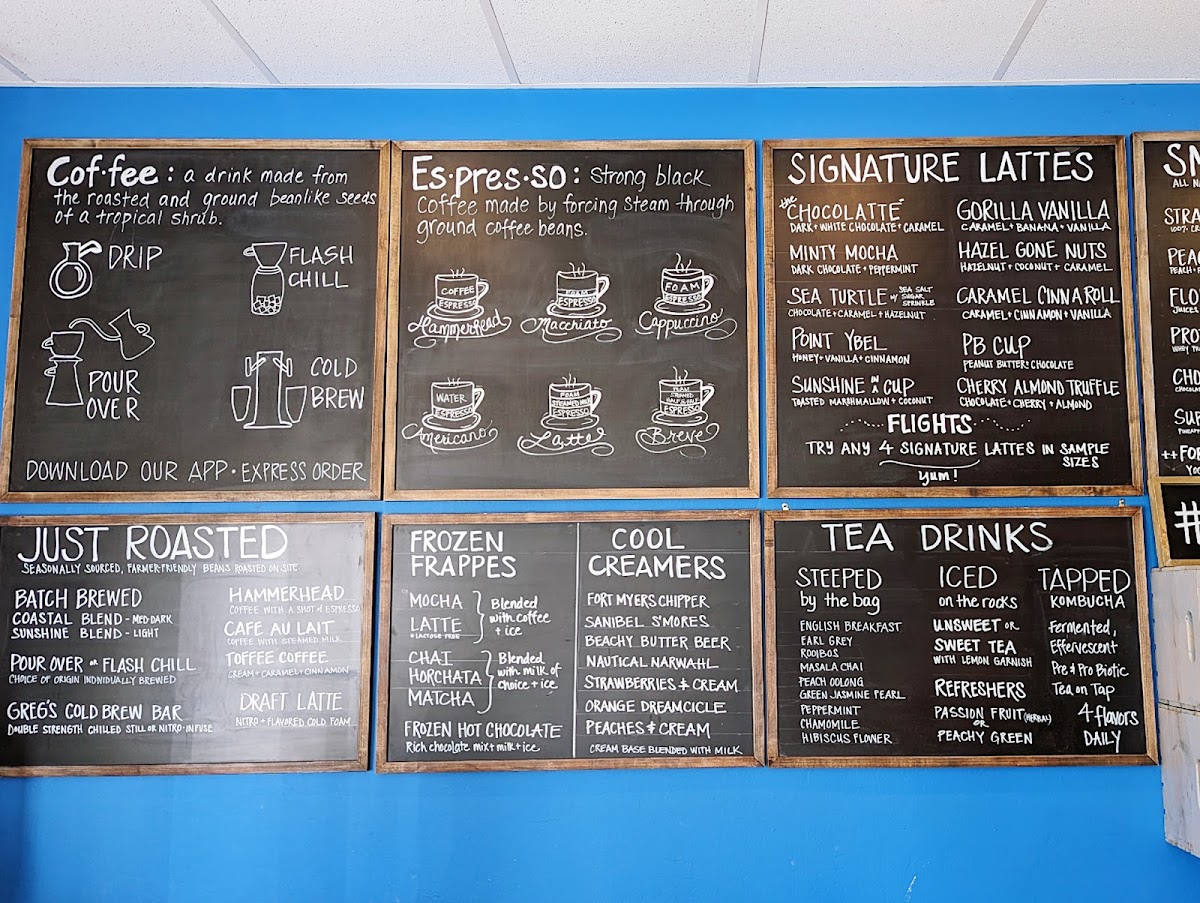 Cof·fee: a drink made from
the roasted and ground beanlike seeds
of a tropical shrub.
DRIP
FLASH
CHILL
POUR
OVER
COLD
BREW
DOWNLOAD OUR APP · EXPRESS ORDER
Es·pres·so: Strong black
Coffee made by forcing steam through
ground coffee beans.
COFFEE
ESPRESSO
Hammerhead
FOAM
ESPRESSO
Macchiato
FOAM
ESPRESSO
Cappuccino
WATER
ESPRESSO
Americano
FOAM
STEAMED MILK
ESPRESSO
Latte
FOAM
STEAMED
HALF & HALF
ESPRESSO
Breve
SIGNATURE LATTES
the
"CHOCOLATTE"
DARK + WHITE CHOCOLATE + CARAMEL
MINTY MOCHA
DARK CHOCOLATE + PEPPERMINT
SEA TURTLE W/ SEA SALT SUGAR SPRINKLE
CHOCOLATE + CARAMEL + HAZELNUT
POINT YBEL
HONEY + VANILLA + CINNAMON
SUNSHINE IN A CUP
TOASTED MARSHMALLOW + COCONUT
GORILLA VANILLA
CARAMEL + BANANA + VANILLA
HAZEL GONE NUTS
HAZELNUT + COCONUT + CARAMEL
CARAMEL CINNAROLL
CARAMEL + CINNAMON + VANILLA
PB CUP
PEANUT BUTTER + CHOCOLATE
CHERRY ALMOND TRUFFLE
CHOCOLATE + CHERRY + ALMOND
FLIGHTS
TRY ANY 4 SIGNATURE LATTES IN SAMPLE
SIZES
yum!
SM
ALL NA
STRA
100% CR
PEAC
PEACH
FLO
JUICE
PRO
WHEY
CHO
SU
++FOR
#
JUST ROASTED
SEASONALLY SOURCED, FARMER-FRIENDLY BEANS ROASTED ON SITE
BATCH BREWED
COASTAL BLEND - MED DARK
SUNSHINE BLEND - LIGHT
POUR OVER OR FLASH CHILL
CHOICE OF ORIGIN INDIVIDUALLY BREWED
GREG'S COLD BREW BAR
DOUBLE STRENGTH CHILLED STILL OR NITRO-INFUSE
HAMMERHEAD
COFFEE WITH A SHOT of ESPRESSO
CAFE AU LAIT
COFFEE WITH STEAMED MILK
TOFFEE COFFEE
CREAM + CARAMEL + CINNAMON
DRAFT LATTE
NITRO + FLAVORED COLD FOAM
FROZEN
FRAPPES
MOCHA
LATTE
LACTOSE FREE
Blended
with coffee
+ ice
CHAI
HORCHATA
MATCHA
Blended
with milk of
choice + ice
FROZEN HOT CHOCOLATE
Rich chocolate mix + milk + ice
COOL
CREAMERS
FORT MYERS CHIPPER
SANIBEL S'MORES
BEACHY BUTTER BEER
NAUTICAL NARWAHL
STRAWBERRIES & CREAM
ORANGE DREAMCICLE
PEACHES & CREAM
CREAM BASE BLENDED WITH MILK
TEA DRINKS
STEEPED
by the bag
ENGLISH BREAKFAST
EARL GREY
ROOIBOS
MASALA CHAI
PEACH OOLONG
GREEN JASMINE PEARL
PEPPERMINT
CHAMOMILE
HIBISCUS FLOWER
ICED
on the rocks
UNSWEET OR
SWEET TEA
WITH LEMON GARNISH
REFRESHERS
PASSION FRUIT (HERBAL)
OR
PEACHY GREEN
TAPPED
KOMBUCHA
Fermented,
Effervescent
Pre & Pro Biotic
Tea on Tap
4 flavors
DAILY